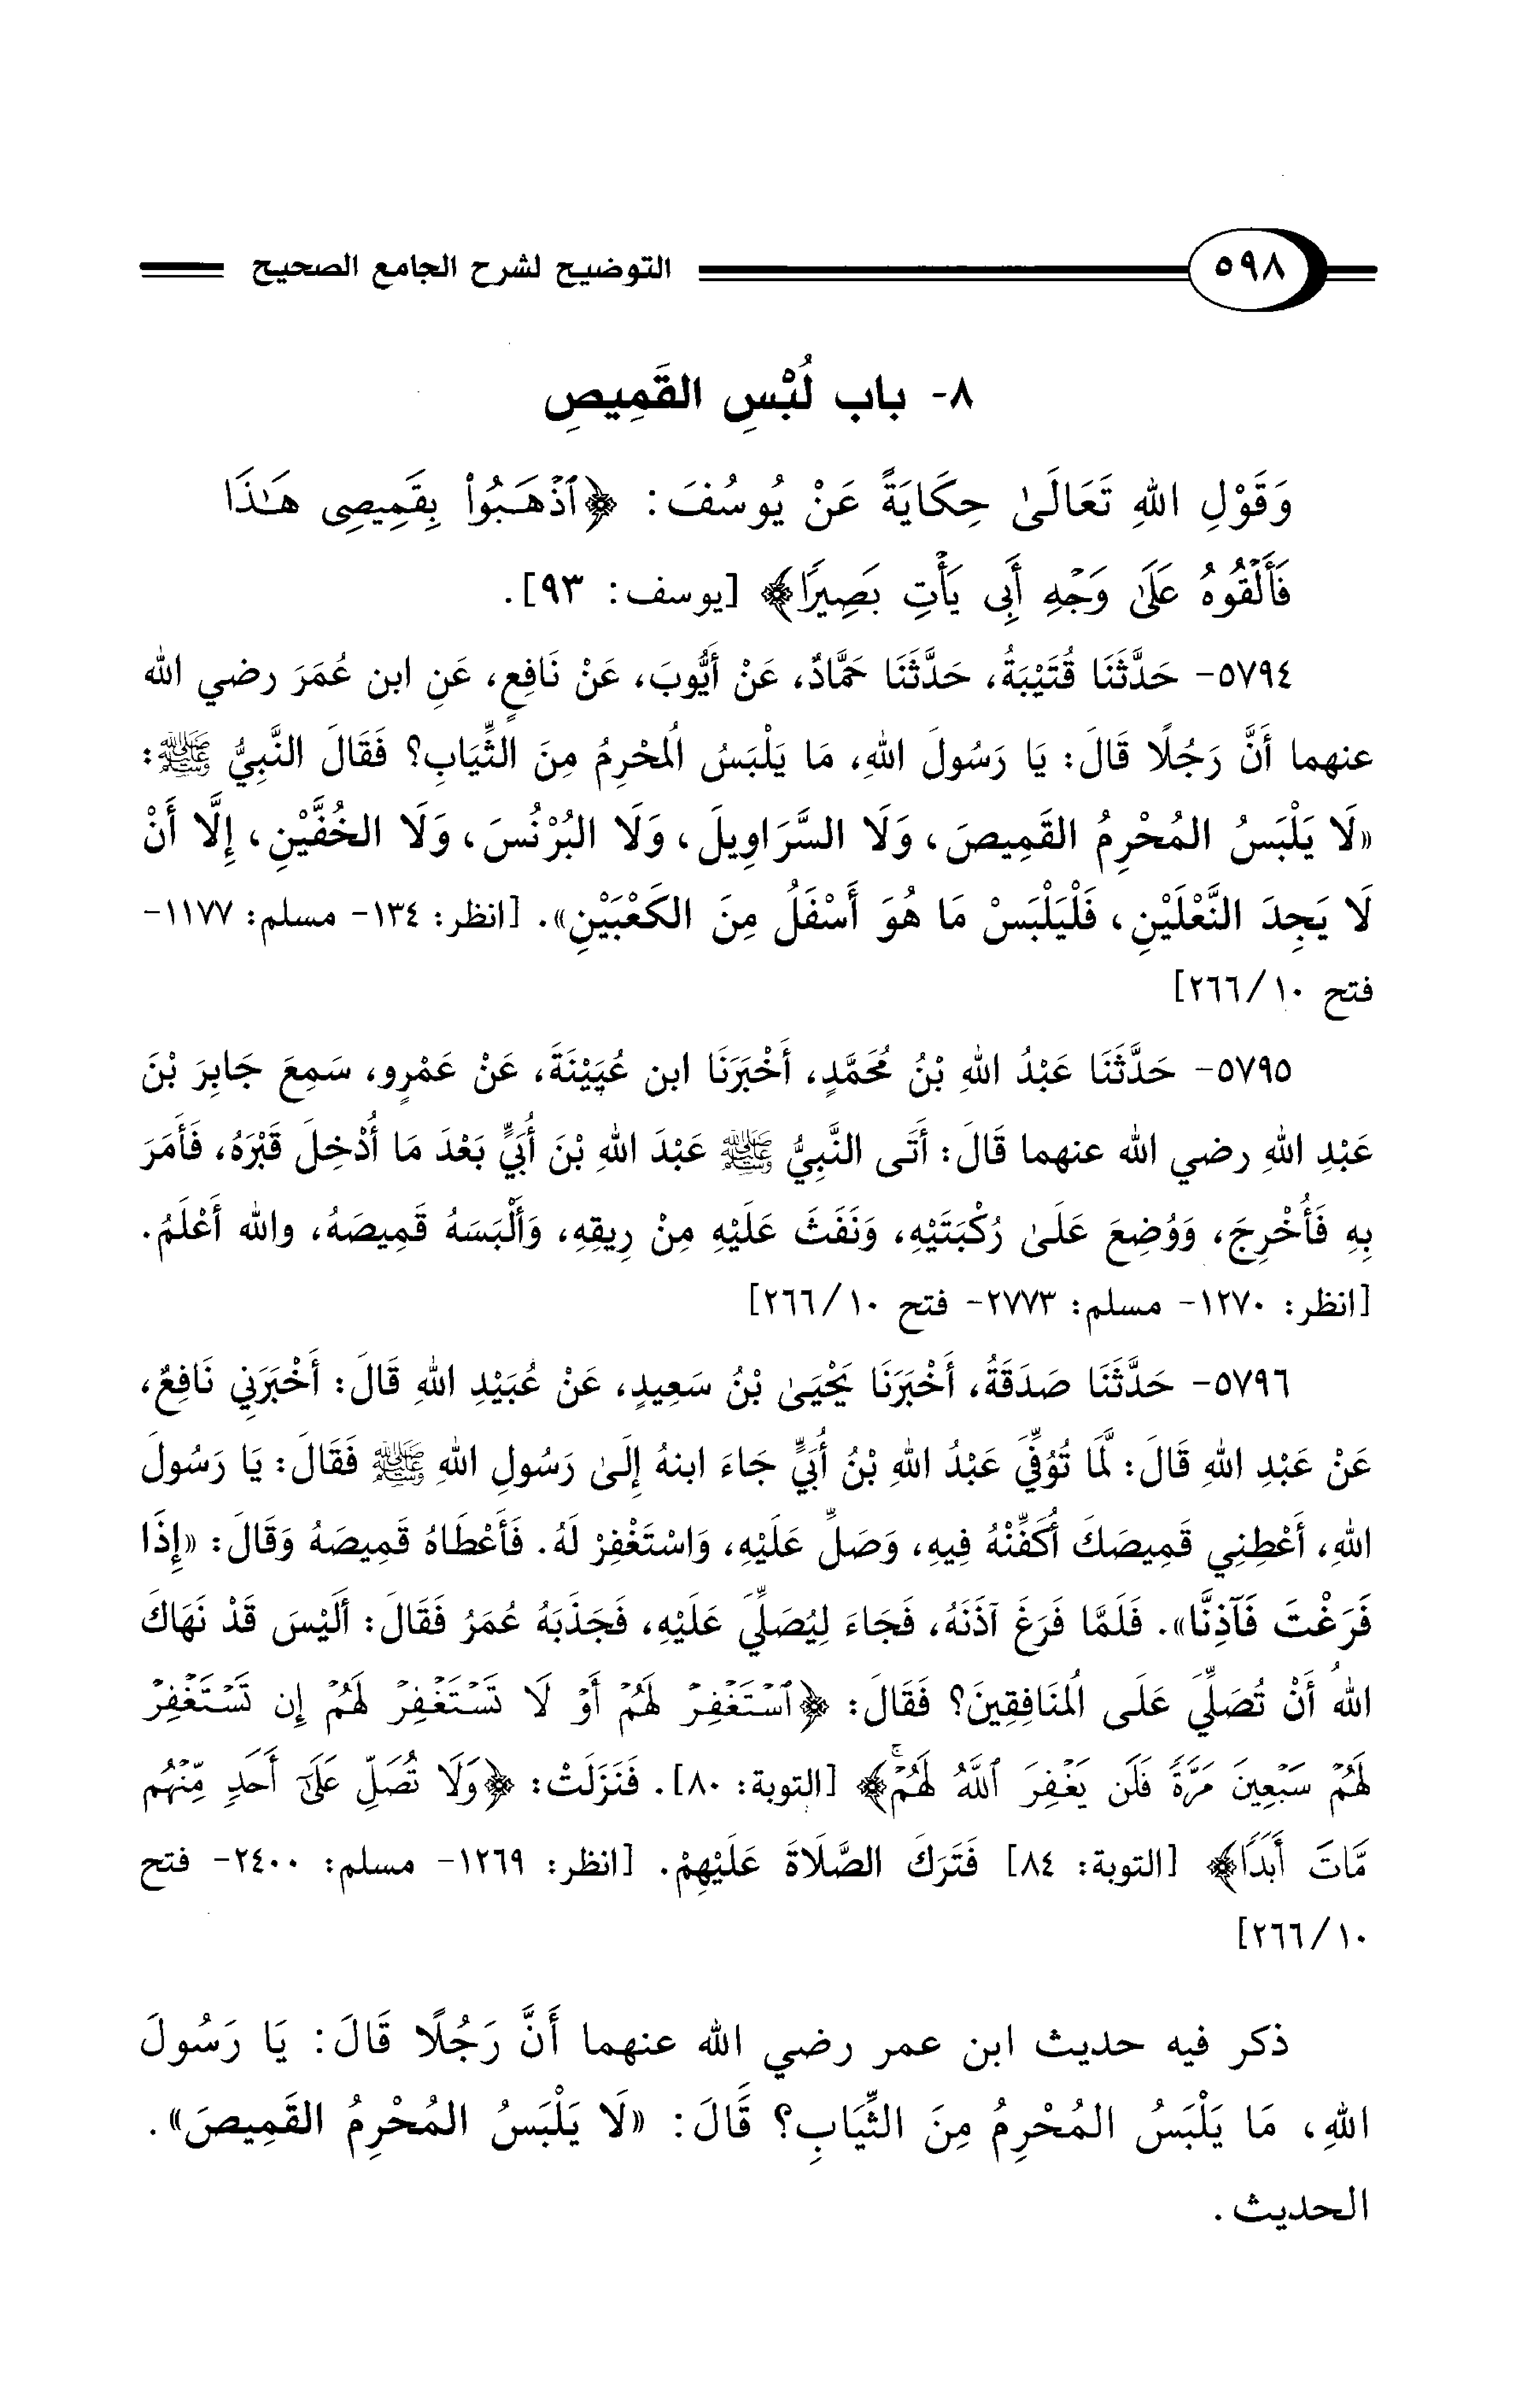 ٥٩٨ التوضيح لشرح الجامع الصحيح
٨- باب لُبْسِ القَمِيصِ
وَقَوْلِ اللهِ تَعَالَىٰ حِكَايَةً عَنْ يُوسُفَ: ﴿ٱذْهَبُوا۟ بِقَمِيصِى هَـٰذَا
فَأَلْقُوهُ عَلَىٰ وَجْهِ أَبِى يَأْتِ بَصِيرًا﴾ [يوسف: ٩٣].
٥٧٩٤- حَدَّثَنَا قُتَيْبَةُ، حَدَّثَنَا حَمَّادٌ، عَنْ أَيُّوبَ، عَنْ نَافِعٍ، عَنِ ابن عُمَرَ رضي الله
عنهما أَنَّ رَجُلًا قَالَ: يَا رَسُولَ اللهِ، مَا يَلْبَسُ الُمحْرِمُ مِنَ الثِّيَابِ؟ فَقَالَ النَّبِيُّ ﷺ:
«لَا يَلْبَسُ المُحْرِمُ القَمِيصَ، وَلَا السَّرَاوِيلَ، وَلَا البُرْنُسَ، وَلَا الخُفَّيْنِ، إِلَّا أَنْ
لَا يَجِدَ النَّعْلَيْنِ، فَلْيَلْبَسْ مَا هُوَ أَسْفَلُ مِنَ الكَعْبَيْنِ». [انظر: ١٣٤- مسلم: ١١٧٧-
فتح ١٠/ ٢٦٦]
٥٧٩٥- حَدَّثَنَا عَبْدُ اللهِ بْنُ مُحَمَّدٍ، أَخْبَرَنَا ابن عُيَيْنَةَ، عَنْ عَمْرٍو، سَمِعَ جَابِرَ بْنَ
عَبْدِ اللهِ رضي الله عنهما قَالَ: أَتَى النَّبِيُّ ﷺ عَبْدَ اللهِ بْنَ أُبَيٍّ بَعْدَ مَا أُدْخِلَ قَبْرَهُ، فَأَمَرَ
بِهِ فَأُخْرِجَ، وَوُضِعَ عَلَىٰ رُكْبَتَيْهِ، وَنَفَثَ عَلَيْهِ مِنْ رِيقِهِ، وَأَلْبَسَهُ قَمِيصَهُ، والله أَعْلَمُ.
[انظر: ١٢٧٠- مسلم: ٢٧٧٣- فتح ١٠/ ٢٦٦]
٥٧٩٦- حَدَّثَنَا صَدَقَةُ، أَخْبَرَنَا يَحْيَىٰ بْنُ سَعِيدٍ، عَنْ عُبَيْدِ اللهِ قَالَ: أَخْبَرَنِي نَافِعٌ،
عَنْ عَبْدِ اللهِ قَالَ: لَمَّا تُوُفِّيَ عَبْدُ اللهِ بْنُ أُبَيٍّ جَاءَ ابنهُ إِلَىٰ رَسُولِ اللهِ ﷺ فَقَالَ: يَا رَسُولَ
اللهِ، أَعْطِنِي قَمِيصَكَ أُكَفِّنْهُ فِيهِ، وَصَلِّ عَلَيْهِ، وَاسْتَغْفِرْ لَهُ. فَأَعْطَاهُ قَمِيصَهُ وَقَالَ: «إِذَا
فَرَغْتَ فَآذِنَّا». فَلَمَّا فَرَغَ آذَنَهُ، فَجَاءَ لِيُصَلِّيَ عَلَيْهِ، فَجَذَبَهُ عُمَرُ فَقَالَ: أَلَيْسَ قَدْ نَهَاكَ
اللهُ أَنْ تُصَلِّيَ عَلَى الُمنَافِقِينَ؟ فَقَالَ: ﴿ٱسْتَغْفِرْ لَهُمْ أَوْ لَا تَسْتَغْفِرْ لَهُمْ إِن تَسْتَغْفِرْ
لَهُمْ سَبْعِينَ مَرَّةً فَلَن يَغْفِرَ ٱللَّهُ لَهُمْ ۚ﴾ [التوبة: ٨٠]. فَنَزَلَتْ: ﴿وَلَا تُصَلِّ عَلَىٰٓ أَحَدٍ مِّنْهُم
مَّاتَ أَبَدًا﴾ [التوبة: ٨٤] فَتَرَكَ الصَّلَاةَ عَلَيْهِمْ. [انظر: ١٢٦٩- مسلم: ٢٤٠٠- فتح
١٠/ ٢٦٦]
ذكر فيه حديث ابن عمر رضي الله عنهما أَنَّ رَجُلًا قَالَ: يَا رَسُولَ
اللهِ، مَا يَلْبَسُ المُحْرِمُ مِنَ الثِّيَابِ؟ قَالَ: «لَا يَلْبَسُ المُحْرِمُ القَمِيصَ».
الحديث.